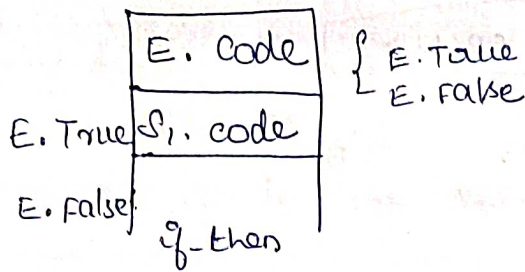 E. Code
{ E. True
E. False
E. True S1. code
E. False
if-then